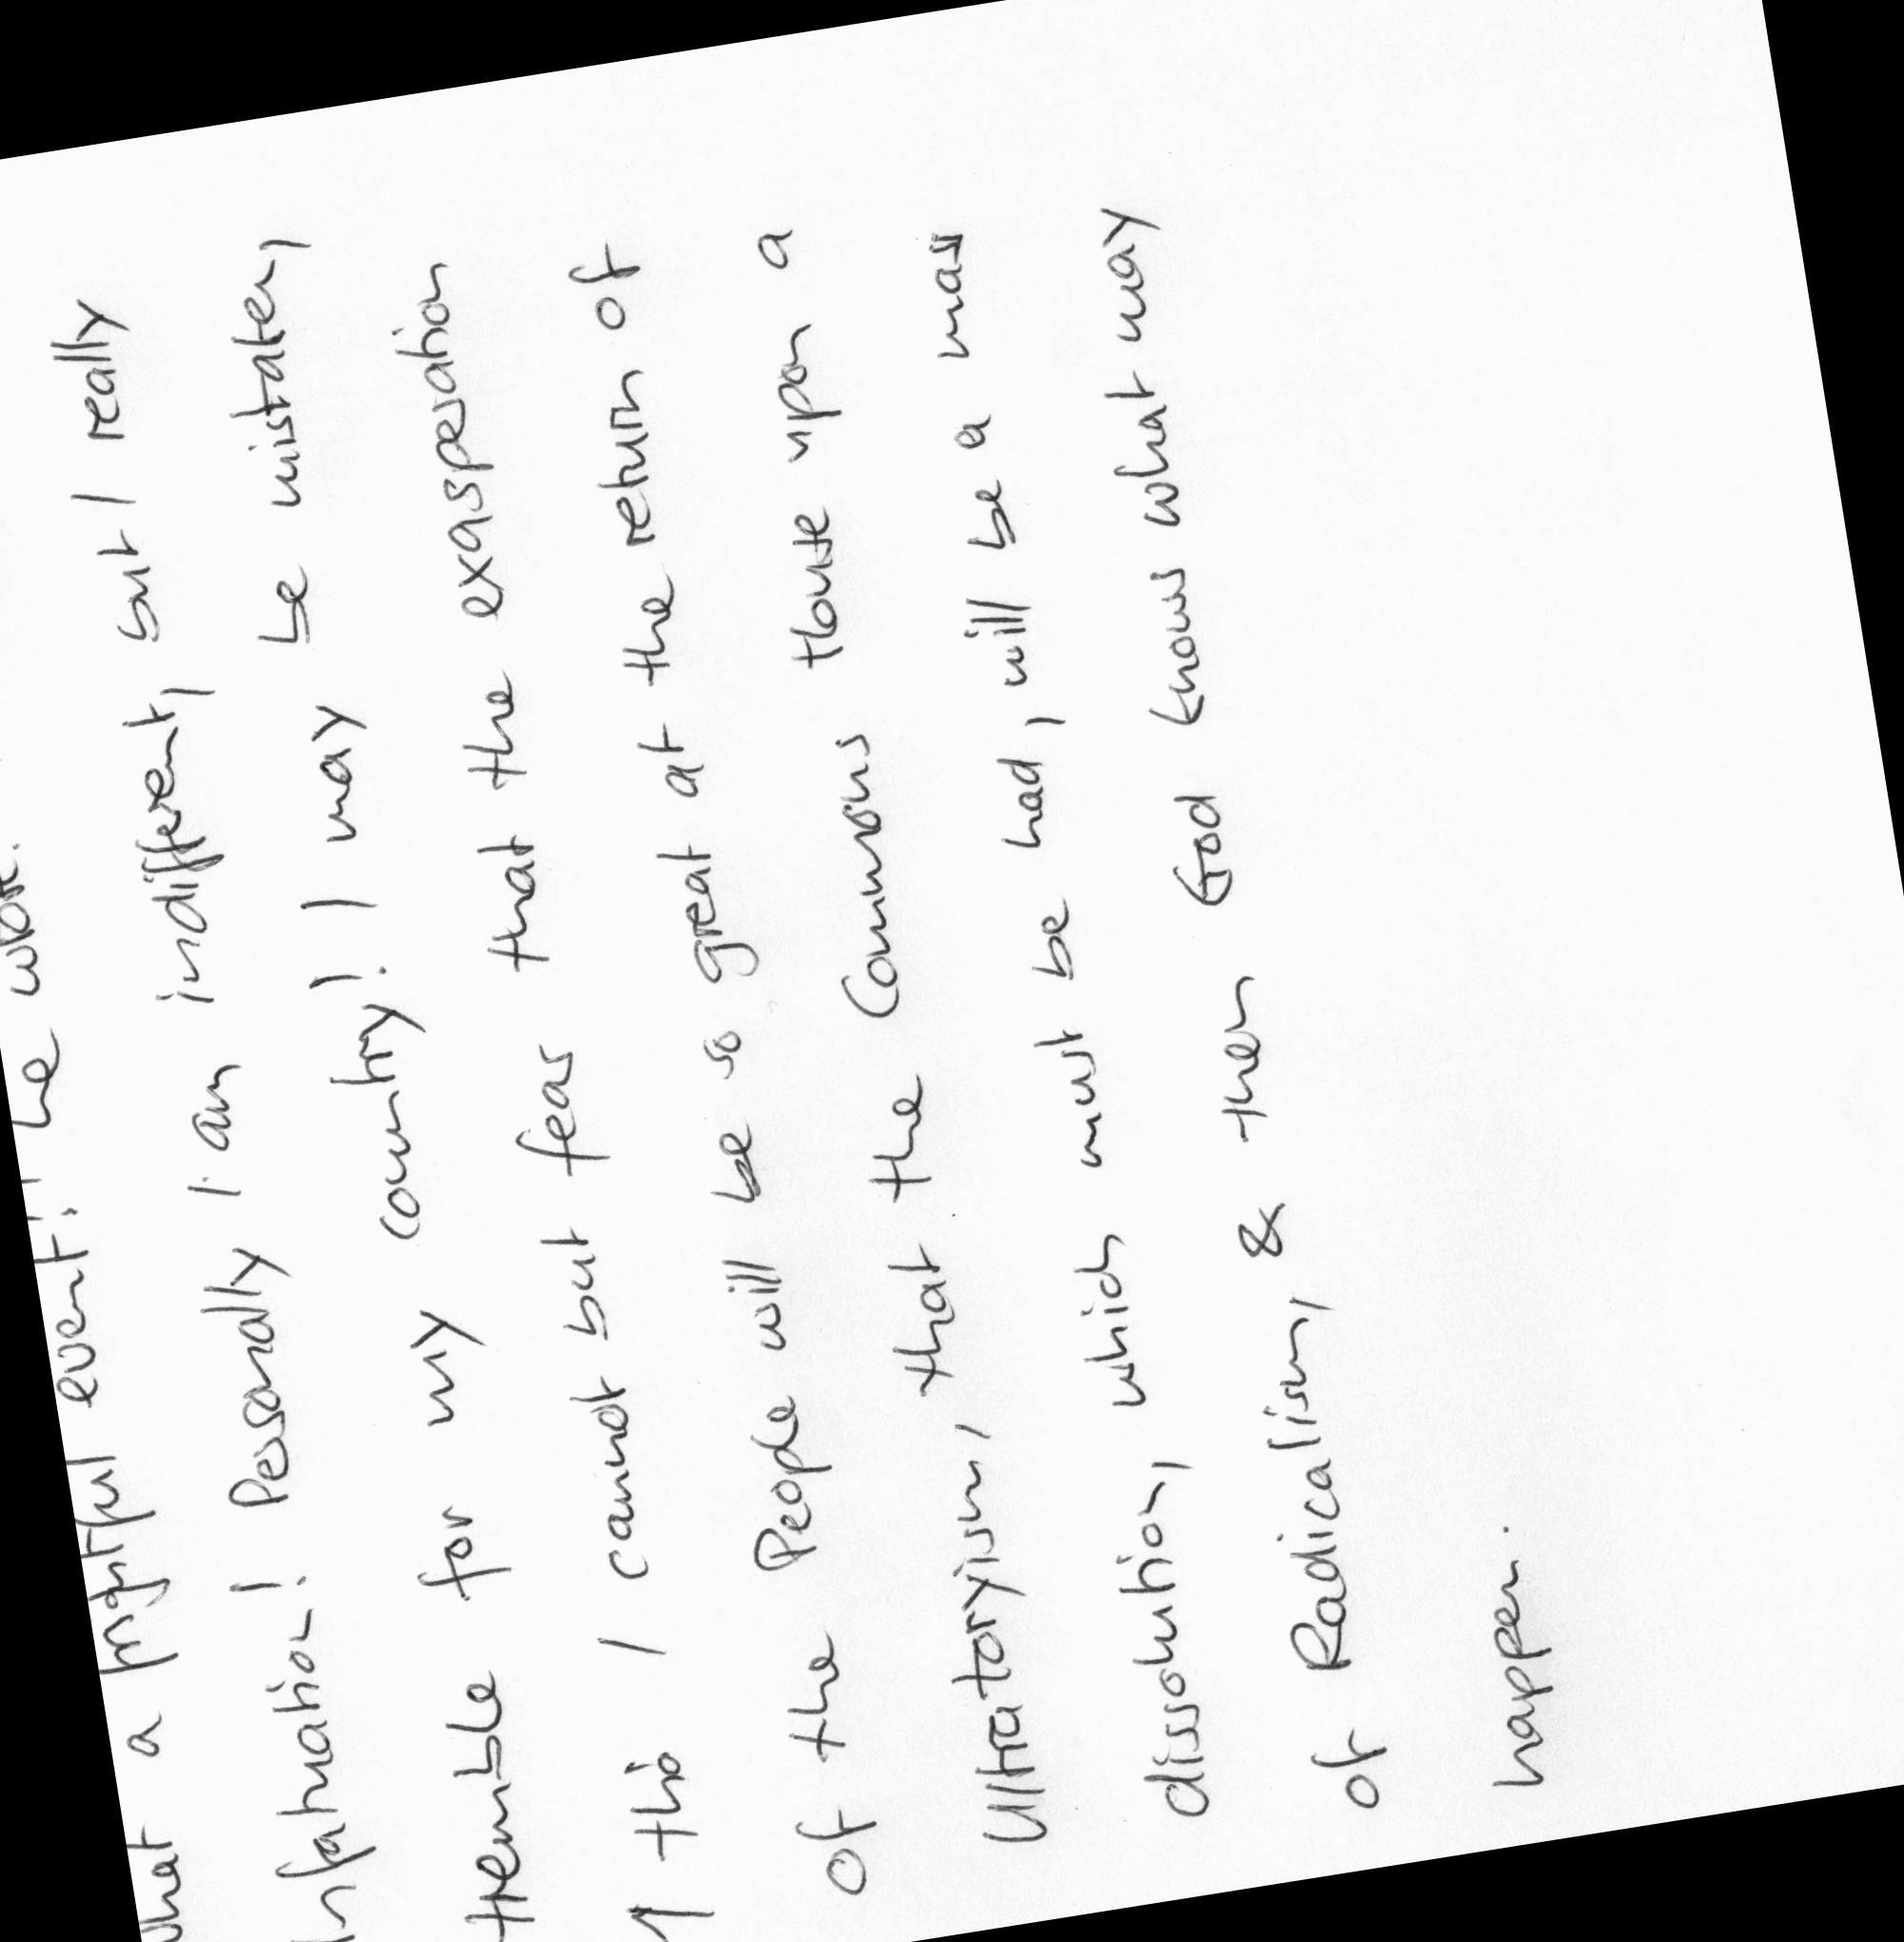 What a frightful event! he wrote.
Infatuation! Personally I am indifferent, but I really
tremble for my country! I may be mistaken,
this I cannot but fear that the exasperation
of the People will be so great at the return of
Ultratoryism, that the Commons House upon a
dissolution, which must be had, will be a mass
of Radicalism, & then God knows what may
happen.